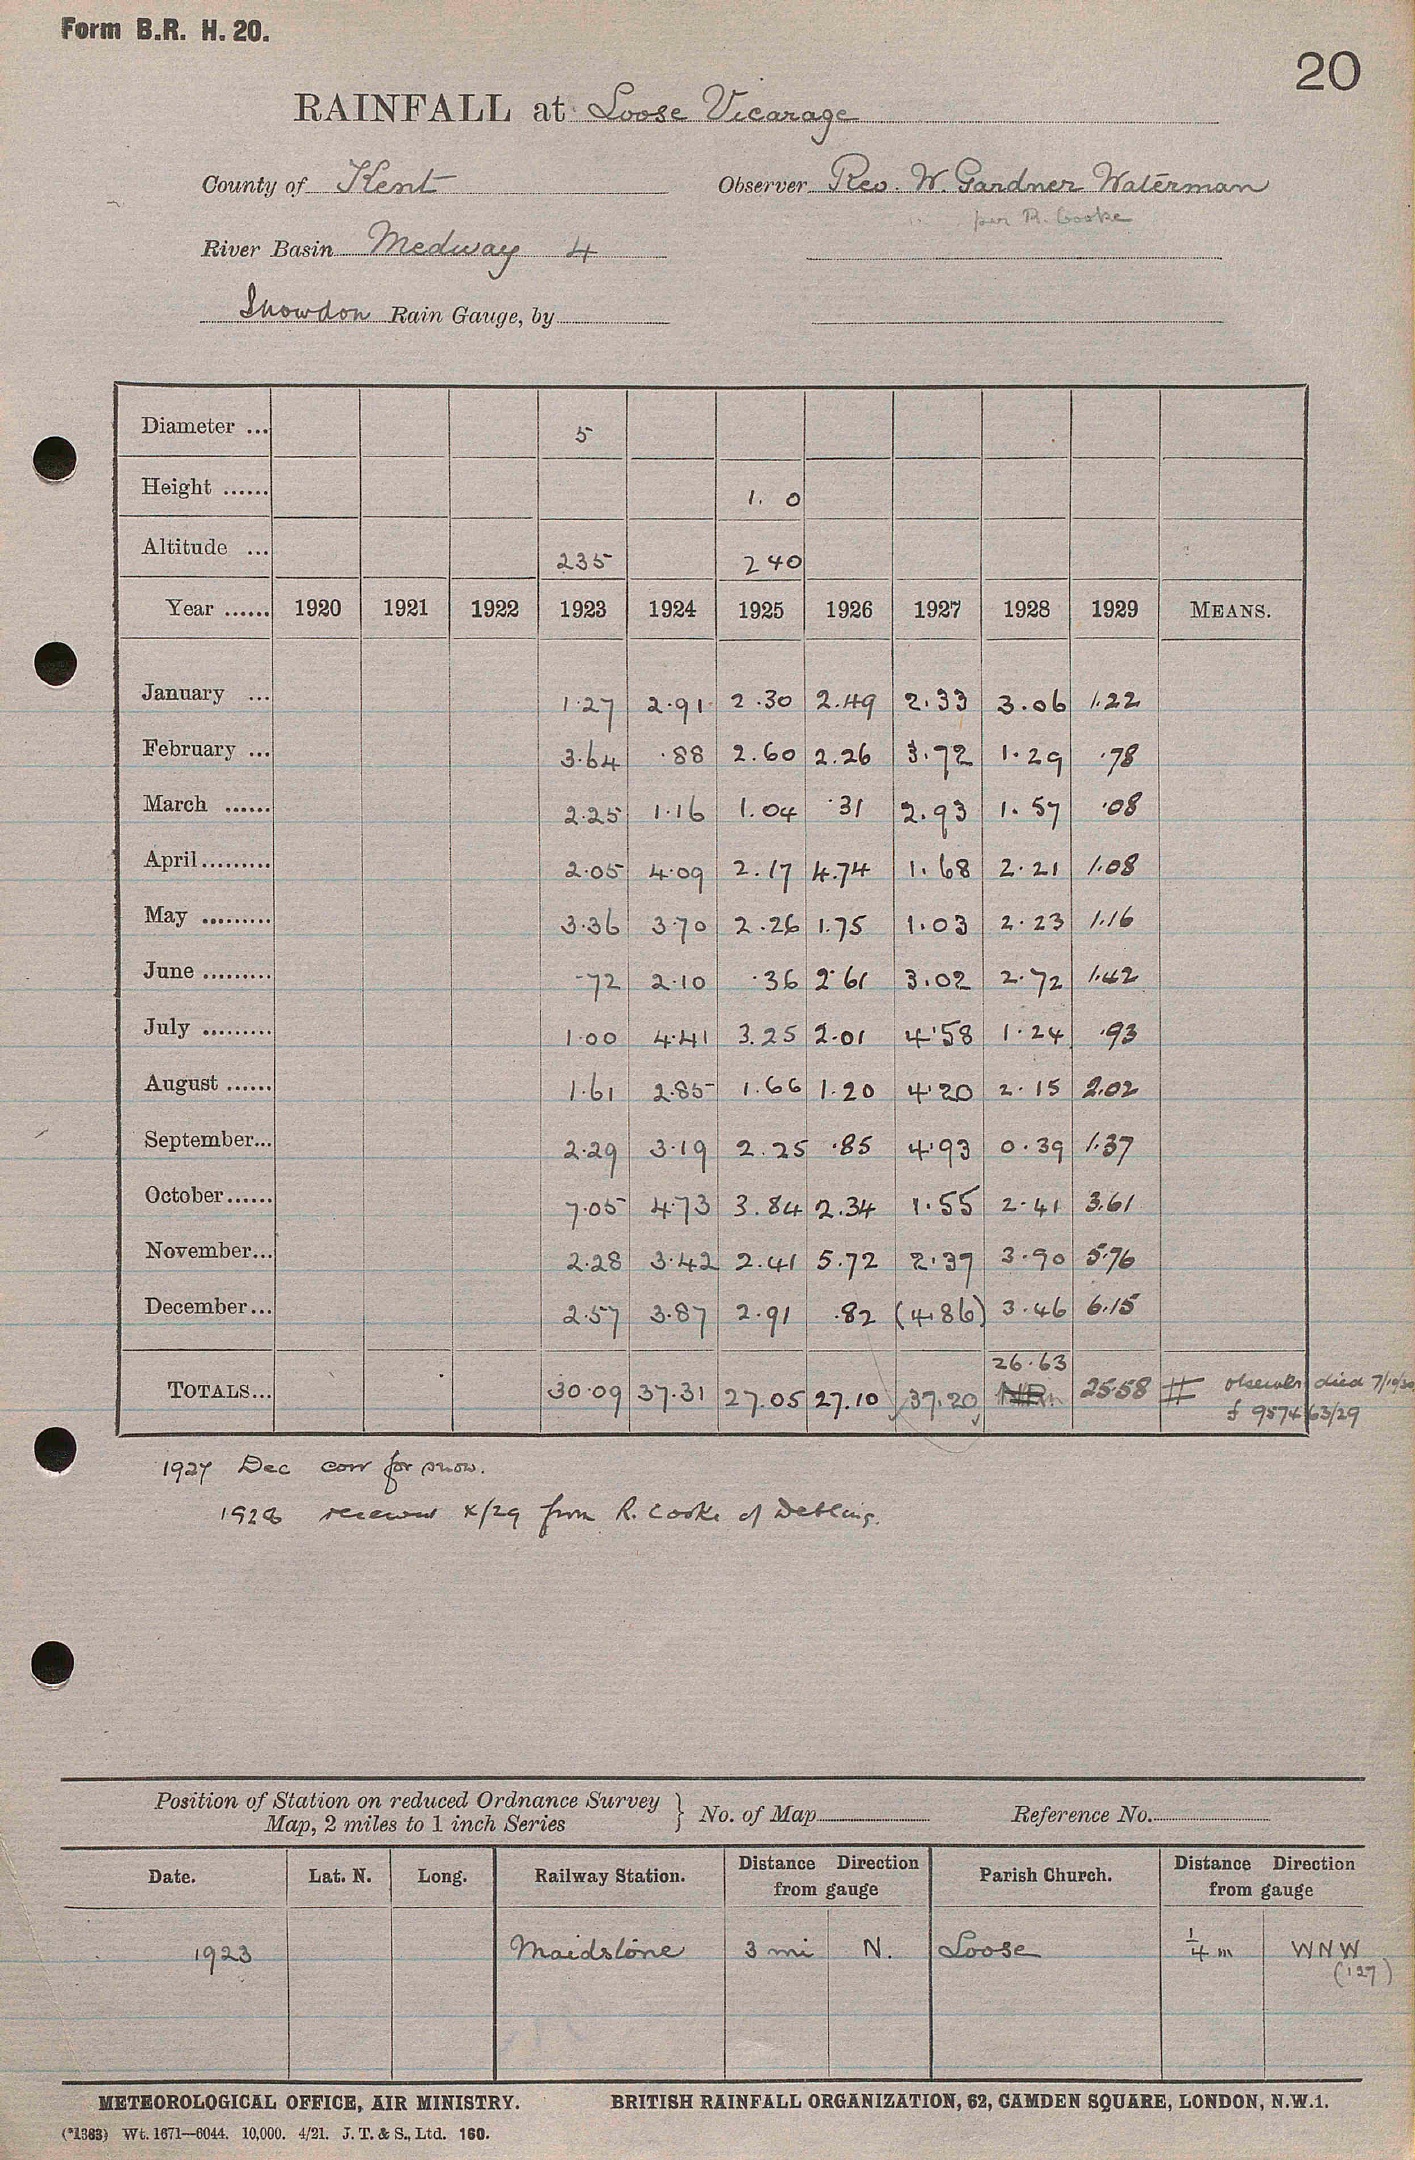 Form B.R. H. 20.
20
RAINFALL at Loose Vicarage
County of Kent Observer Rev. W. Gardner Waterman
per R. Cooke
River Basin Medway 4
Snowdon Rain Gauge, by
Diameter ... 5
Height ...... 1. 0
Altitude ... 235 240
Year ...... 1920 1921 1922 1923 1924 1925 1926 1927 1928 1929 MEANS.
January ... 1.27 2.91 2.30 2.49 2.33 3.06 1.22
February ... 3.64 .88 2.60 2.26 3.72 1.29 .78
March ...... 2.25 1.16 1.04 .31 2.93 1.57 .08
April ......... 2.05 4.09 2.17 4.74 1.68 2.21 1.08
May ......... 3.36 3.70 2.26 1.75 1.03 2.23 1.16
June ......... .72 2.10 .36 2.61 3.02 2.72 1.42
July ......... 1.00 4.41 3.25 2.01 4.58 1.24 .93
August ...... 1.61 2.85 1.66 1.20 4.20 2.15 2.02
September... 2.29 3.19 2.25 .85 4.93 0.39 1.37
October...... 7.05 4.73 3.84 2.34 1.55 2.41 3.61
November... 2.28 3.42 2.41 5.72 2.37 3.90 5.76
December... 2.57 3.87 2.91 .82 (4.86) 3.46 6.15
26.63
TOTALS... 30.09 37.31 27.05 27.10 37.20 25.58 observer died 7/10/30
f 957463/29
1927 Dec corr for snow.
1928 received X/29 from R. Cooke of Detling.
Position of Station on reduced Ordnance Survey
Map, 2 miles to 1 inch Series } No. of Map Reference No.
Date. Lat. N. Long. Railway Station. Distance Direction from gauge Parish Church. Distance Direction from gauge
1923 Maidstone 3 mi N. Loose 1/4 m WNW
(127)
METEOROLOGICAL OFFICE, AIR MINISTRY. BRITISH RAINFALL ORGANIZATION, 62, CAMDEN SQUARE, LONDON, N.W.1.
(*1363) Wt. 1671—6044. 10,000. 4/21. J. T. & S., Ltd. 160.